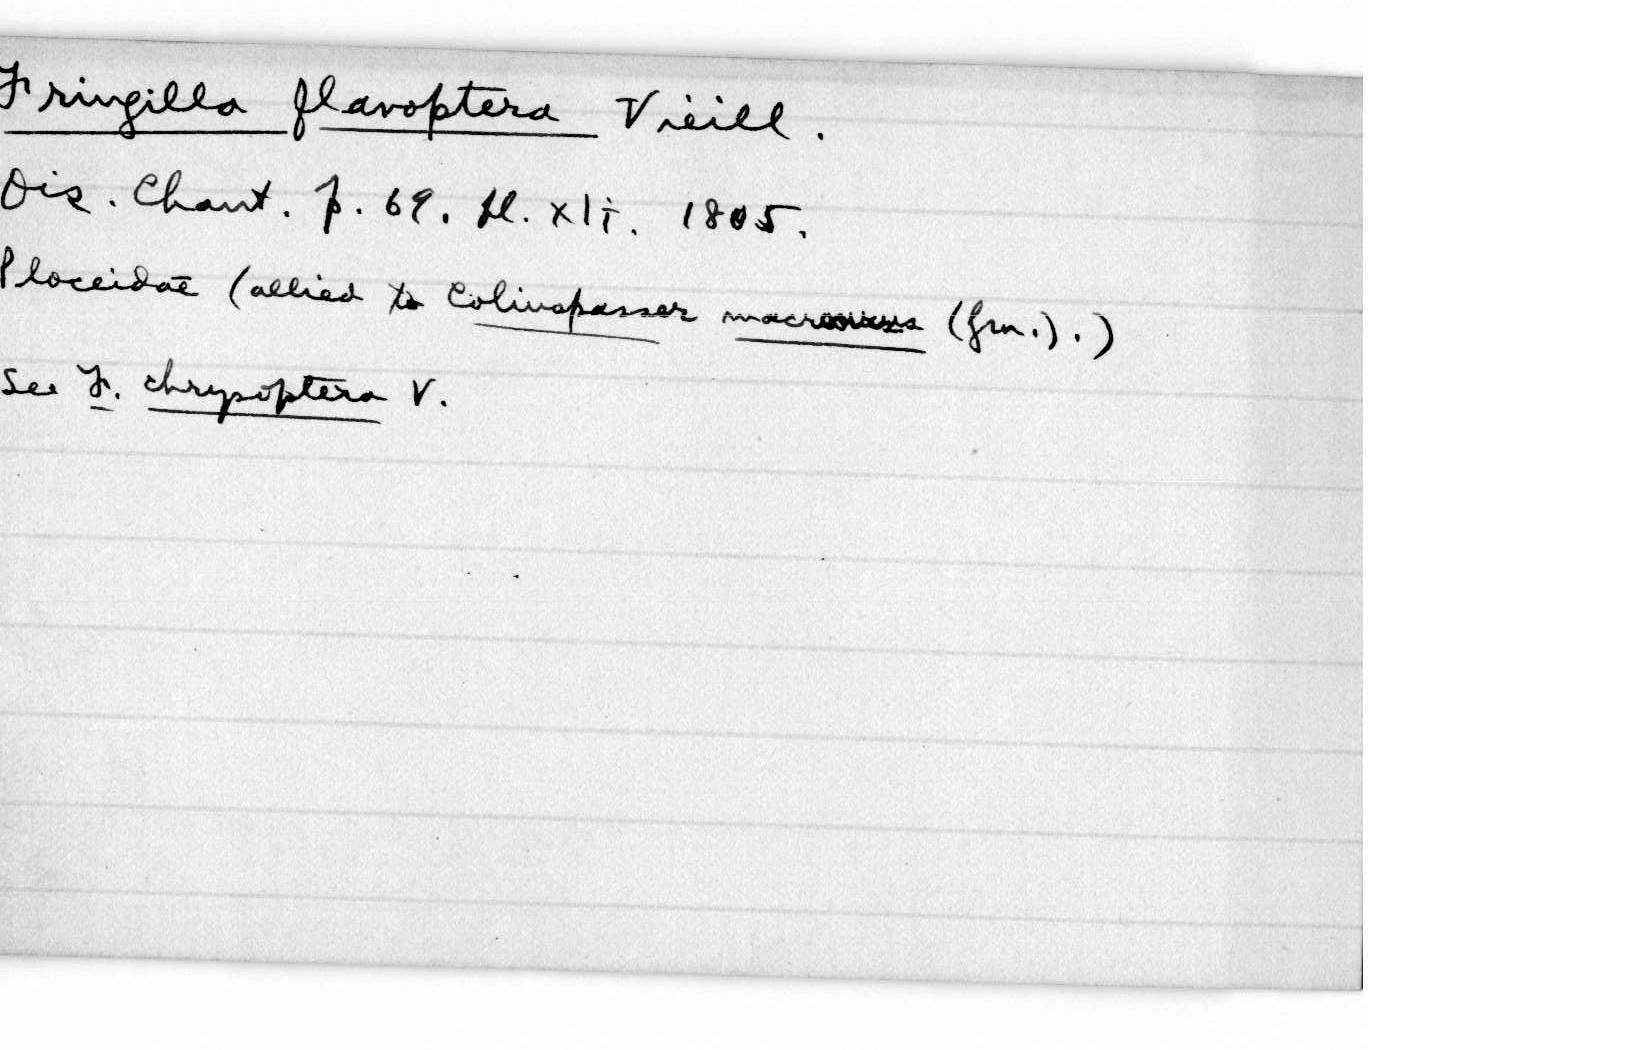 Fringilla flavoptera Vieill.
Ois. Chant. p. 69. pl. xli. 1805.
Ploceidae (allied to Coliuspasser (Gm.).)
See F. chrysoptera V.